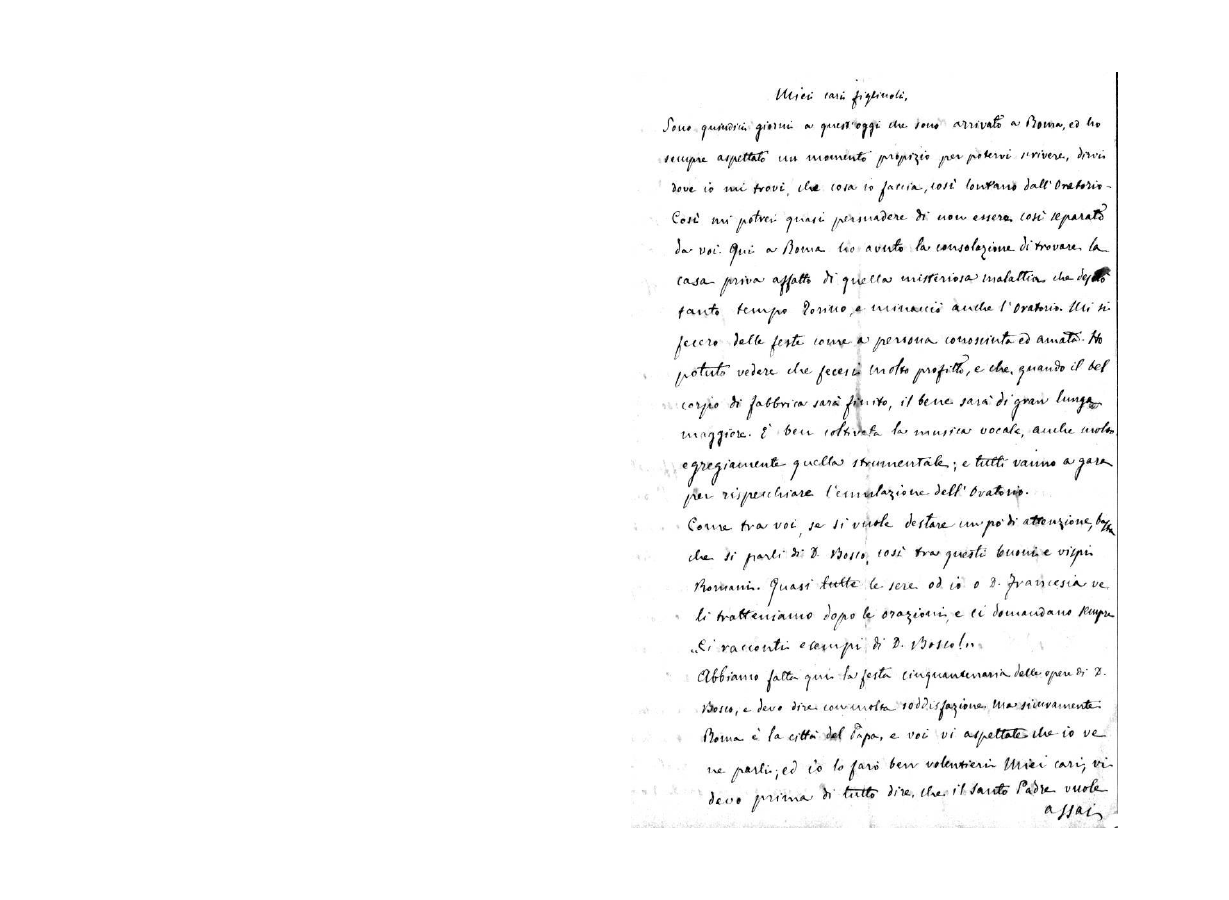 Miei cari figliuoli,
Sono quindici giorni a quest'oggi che sono arrivato a Roma, ed ho
sempre aspettato un momento propizio per potervi scrivere, dirvi
dove io mi trovi, che cosa io faccia, così lontano dall'Oratorio.
Così mi potrei quasi persuadere di non essere così separato
da voi. Qui a Roma ho avuto la consolazione di trovare la
casa priva affatto di quella misteriosa malattia che destò
tanto tempo Torino, e minacciò anche l'Oratorio. Mi si
fecero delle feste come a persona conosciuta ed amata. Ho
potuto vedere che fecesi molto profitto, e che, quando il bel
corpo di fabbrica sarà finito, il bene sarà di gran lunga
maggiore. È ben coltivata la musica vocale, anche molto
egregiamente quella strumentale; e tutti vanno a gara
per rispecchiare l'emulazione dell'Oratorio.
Come tra voi, se si vuole destare un po' di attenzione, basta
che si parli di D. Bosco, così tra questi buoni e vispi
Romani. Quasi tutte le sere od io o D. Francesia ve
li tratteniamo dopo le orazioni, e ci domandano sempre
„Ci racconti esempi di D. Bosco!„
Abbiamo fatta qui la festa cinquantenaria delle opere di D.
Bosco, e devo dire con molta soddisfazione. Ma sicuramente
Roma è la città del Papa, e voi vi aspettate che io ve
ne parli; ed io lo farò ben volentieri. Miei cari, vi
devo prima di tutto dire, che il Santo Padre vuole
assai